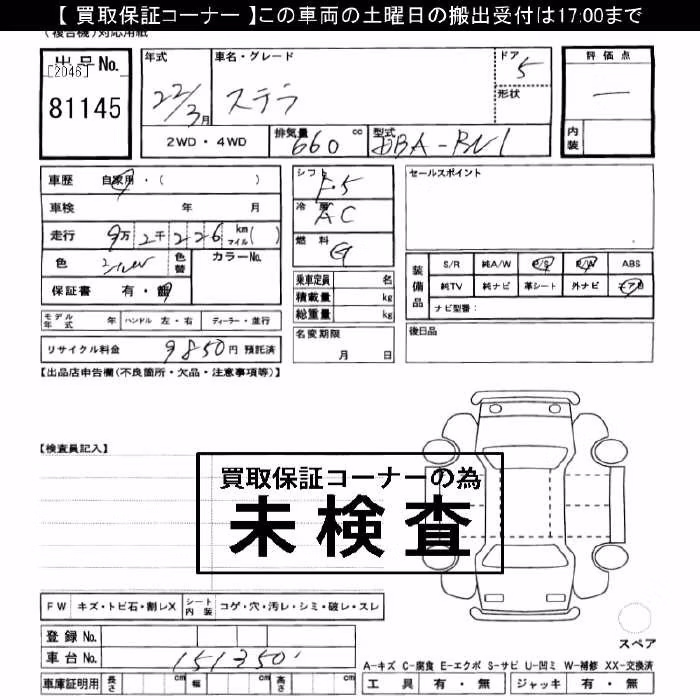 【 買取保証コーナー 】この車両の土曜日の搬出受付は17:00まで
(複合機)対応用紙
出品No.
[2046]
81145
年式
22/3月
車名・グレード
ステラ
ドア
5
形状
評価点
―
内装
2WD・4WD
排気量 660 cc
型式 DBA-RN1
車歴 自家用・( )
車検 年 月
走行 9万2千226 km マイル( )
色
色替
カラーNo.
保証書 有・無
シフト F5
冷房 AC
燃料 G
乗車定員 名
積載量 kg
総重量 kg
セールスポイント
装備品
S/R 純A/W P/S P/W ABS
純TV 純ナビ 革シート 外ナビ エアB
ナビ型番:
モデル年式 年 ハンドル 左・右 ディーラー・並行
リサイクル料金 9850円 預託済
名変期限
月 日
後日品
【出品店申告欄(不良箇所・欠品・注意事項等)】
【検査員記入】
買取保証コーナーの為
未検査
FW キズ・トビ石・割レX シート内装 コゲ・穴・汚レ・シミ・破レ・スレ
登録No.
車台No. 151350
車庫証明用 長さ cm 幅 cm 高さ cm
スペア
A-キズ C-腐食 E-エクボ S-サビ U-凹ミ W-補修 XX-交換済
工具 有・無 ジャッキ 有・無